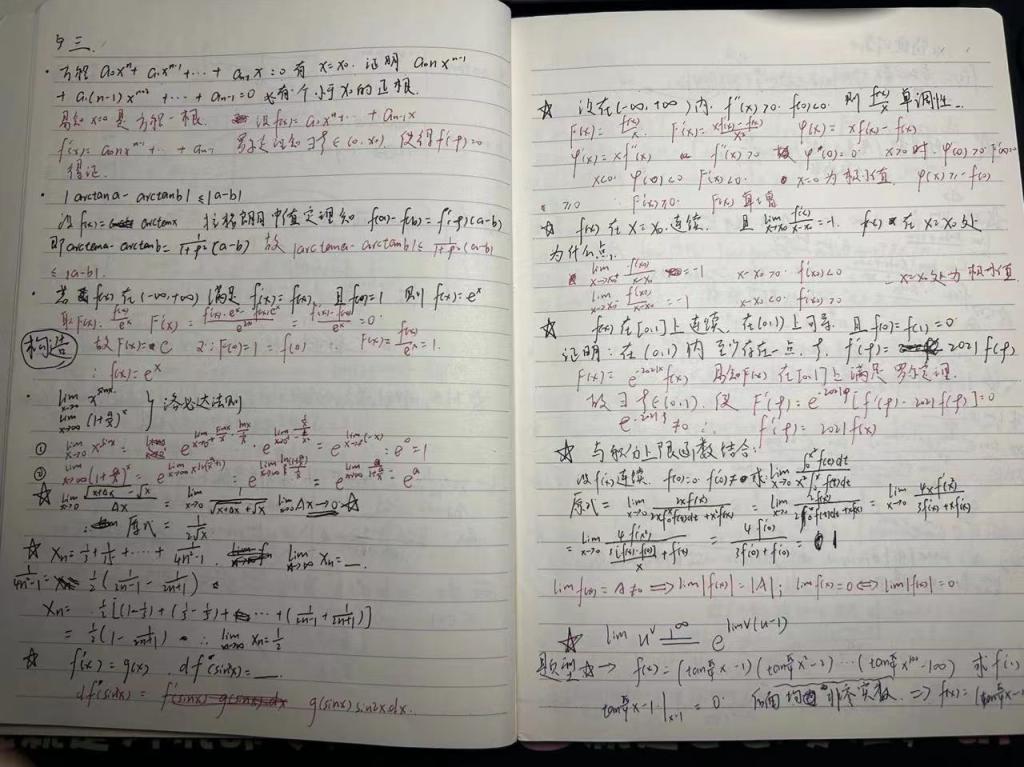 夕三.
· 方程 a₀xⁿ + a₁xⁿ⁻¹ + ··· + aₙ₋₁x = 0 有 x = x₀. 证明 a₀nxⁿ⁻¹
+ a₁(n-1)xⁿ⁻² + ··· + aₙ₋₁ = 0 必有一个小于 x₀ 的正根.
易知 x=0 是方程一根. 设f(x) = a₀xⁿ + ··· + aₙ₋₁x
f'(x) = a₀nxⁿ⁻¹ + ··· + aₙ₋₁ 罗尔定理知 ∃ ξ ∈ (0, x₀), 使得 f'(ξ)=0
得证.
· |arctana - arctanb| ≤ |a-b|
设 f(x) = arctanx 拉格朗日中值定理知 f(a)-f(b) = f'(ξ)(a-b)
即 arctana - arctanb = 1/(1+ξ²) (a-b) 故 |arctana - arctanb| ≤ 1/(1+ξ²) (a-b)
≤ |a-b|.
· 若 f(x) 在 (-∞,+∞) 满足 f'(x) = f(x), 且 f(0)=1 则 f(x) = eˣ
取F(x) = f(x)/eˣ F'(x) = (f'(x)·eˣ - f(x)eˣ)/e²ˣ = (f'(x) - f(x))/eˣ = 0
构造 故 F(x) = C 又∵ F(0) = 1 = f(0) ∴ F(x) = f(x)/eˣ = 1.
∴ f(x) = eˣ
· lim x→0 x^sinx
lim x→∞ (1+a/x)ˣ } 洛必达法则
① lim x→0 x^sinx = = e^1
② lim x→∞ (1+a/x)ˣ = e^lim x→∞ = eᵃ
☆ lim x→0 (√(x+Δx) - √x)/Δx = lim x→0 1/(√(x+Δx) + √x) lim Δx→0 ☆
∴ 原式 = 1/(2√x)
☆ Xₙ = 1/3 + 1/15 + ··· + 1/(4n²-1). lim n→∞ Xₙ = __.
1/(4n²-1) = 1/2 (1/(2n-1) - 1/(2n+1))
Xₙ = 1/2 [(1-1/3) + (1/3 - 1/5) + ··· + (1/(2n-1) + 1/(2n+1))]
= 1/2 (1 - 1/(2n+1)) ∴ lim n→∞ Xₙ = 1/2
☆ f'(x) = g(x). df(sin²x) = __.
df(sin²x) = g(sin²x) sin2xdx.
☆ 设在 (-∞, +∞) 内, f''(x) > 0. f(0) < 0. 则 f(x)/x 单调性.
F(x) = f(x)/x. F'(x) = (xf'(x) - f(x))/x² φ(x) = xf'(x) - f(x)
φ'(x) = xf''(x) ∵ f''(x) > 0 故 φ'(0) = 0 x>0 时. φ'(x) > 0
x<0. φ'(x) < 0 ∴ x=0 为极小值. φ(x) ≥ -f(0)
≥ 0 ∴ F'(x) ≥ 0. F(x) 单增
☆ f(x) 在 x = x₀ 连续. 且 lim x→x₀ f'(x)/(x-x₀) = -1. f(x) 在 x = x₀ 处
为什么点.
lim x→x₀⁺ f'(x)/(x-x₀) = -1 x-x₀ > 0 f'(x) < 0 x = x₀ 处为极大值
lim x→x₀⁻ f'(x)/(x-x₀) = -1 x-x₀ < 0 f'(x) > 0
☆ f(x) 在 [0,1] 上连续. 在 (0,1) 上可导. 且 f(0) = f(1) = 0
证明: 在 (0,1) 内至少存在一点 ξ, f'(ξ) = 2021 f(ξ)
F(x) = e^(-2021x) f(x) 易知F(x) 在 [0,1] 上满足罗尔定理.
故 ∃ ξ ∈ (0,1). 使 F'(ξ) = e^(-2021ξ) [f'(ξ) - 2021 f(ξ)] = 0
e^(-2021ξ) ≠ 0 ∴ f'(ξ) = 2021 f(x)
☆ 与积分上限函数结合:
设 f(x) 连续. f(0) = 0 f'(0) ≠ 0 求 lim x→0 ∫₀^x² f(t)dt / (x²∫₀ˣ f(t)dt)
原式 = lim x→0 2xf(x²)/(2x∫₀ˣ f(t)dt + x²f(x)) = lim x→0 2f(x²)/(2∫₀ˣ f(t)dt + xf(x)) = lim x→0 4xf'(x²)/(3f(x) + xf'(x))
= lim x→0 4f'(x²)/(3[f(x) - f(0)]/x + f'(x)) = 4f'(0)/(3f'(0) + f'(0)) = 1
lim f(x) = A ≠ 0 ⟹ lim|f(x)| = |A|; lim f(x) = 0 ⟺ lim|f(x)| = 0
☆ lim uᵛ =(1^∞)= e^(lim v(u-1))
题型 ☆→ f(x) = (tan π/4 x - 1)(tan π/4 x² - 2) ··· (tan π/4 x¹⁰⁰ - 100) 求 f'(1)
tan π/4 x - 1 |ₓ₌₁ = 0. 后面均为非零实数. ⟹ f'(x) = (tan π/4 x -